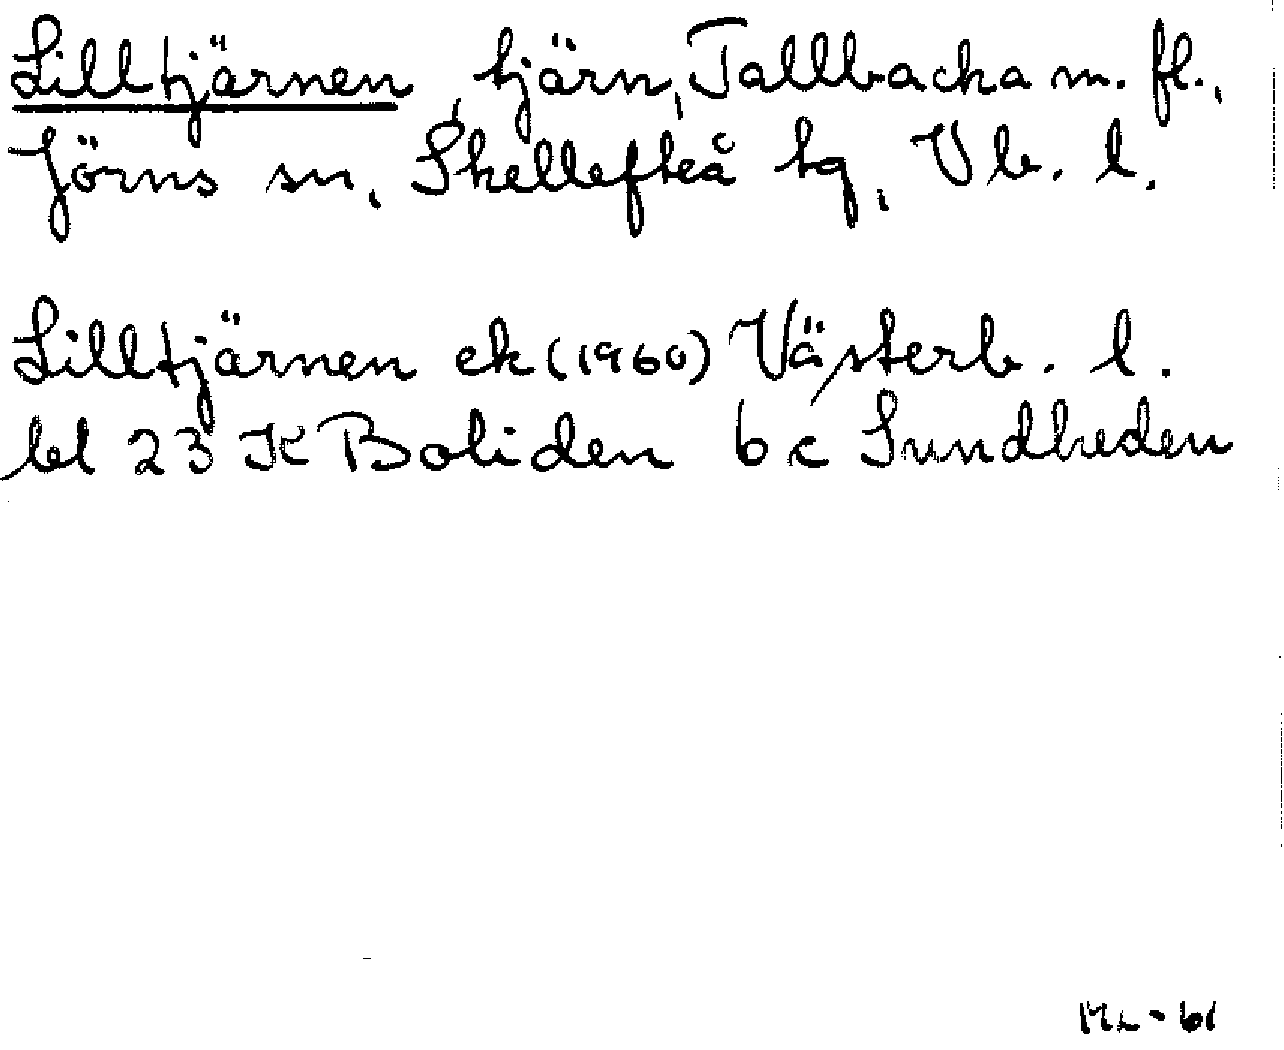 Lilltjärnen, tjärn, Tallbacka m. fl.,
Jörns sn, Skellefteå tg, Vb. l.
Lilltjärnen ek (1960) Västerb. l.
bl 23 K Boliden 6 c Sundheden